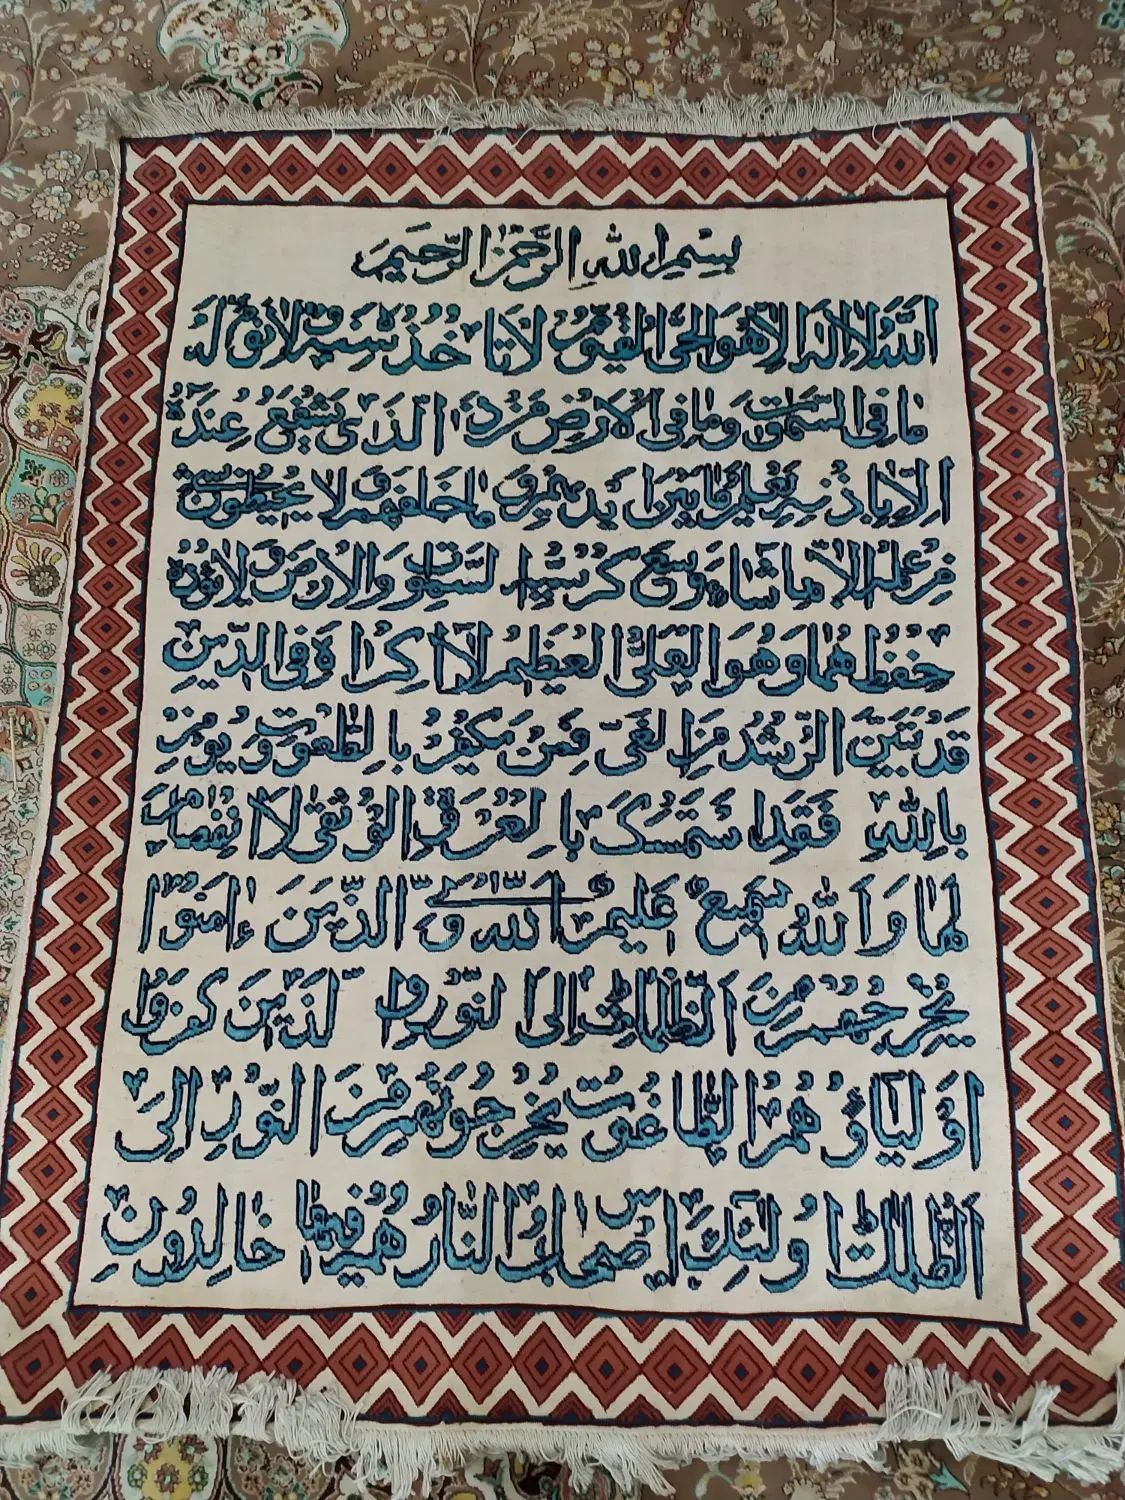 بسم الله الرحمن الرحيم
الله لا اله الا هو الحي القيوم لا تاخذه سنه ولا نوم له
ما في السموت وما في الارض من ذا الذي يشفع عنده
الا باذنه يعلم ما بين ايديهم وما خلفهم ولا يحيطون بشيء
من علمه الا بما شاء وسع كرسيه السموت والارض ولا يؤده
حفظهما وهو العلي العظيم لا اكراه في الدين
قد تبين الرشد من الغي فمن يكفر بالطغوت ويومن
بالله فقد استمسك بالعروة الوثقى لا انفصام
لها والله سميع عليم الله ولي الذين ءامنوا
يخرجهم من الظلمت الى النور والذين كفروا
اولياؤهم الطاغوت يخرجونهم من النور الى
الظلمات اولئك اصحاب النار هم فيها خالدون